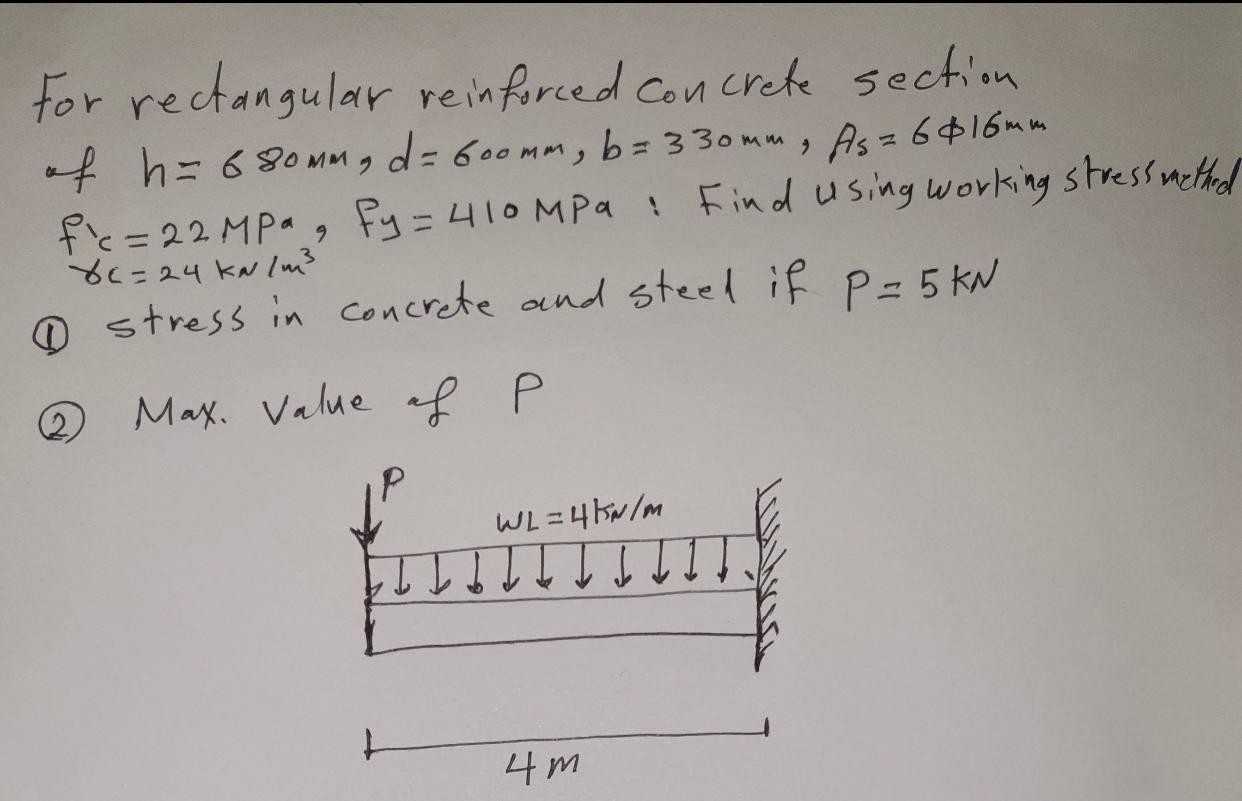 For rectangular reinforced concrete section
of h = 680mm, d = 600mm, b = 330mm, As = 6ϕ16mm
f'c = 22 MPa, fy = 410 MPa : Find using working stress method
γc = 24 kN/m³
① stress in concrete and steel if P = 5 KN
② Max. Value of P
P
WL = 4 KN/m
4 m